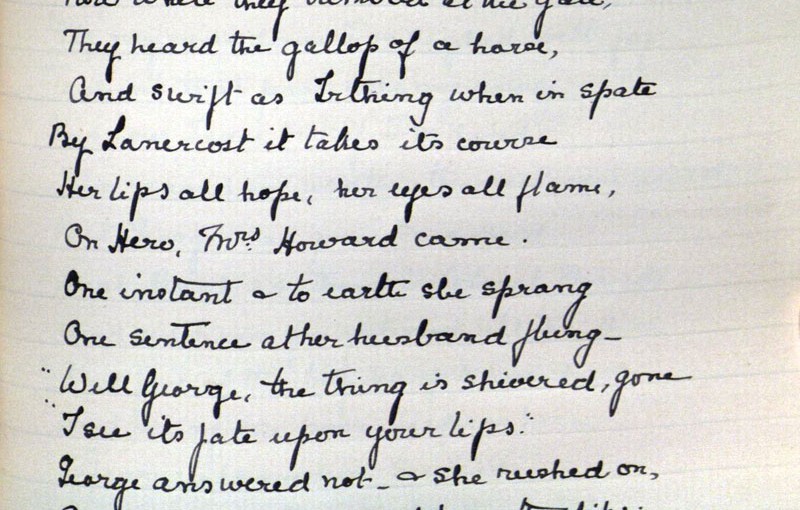 they
They heard the gallop of a horse,
And swift as Irthing when in spate
By Lanercost it takes its course
Her lips all hope, her eyes all flame,
On Hero, Mrs Howard came.
One instant & to earth she sprang
One sentence at her husband flung_
"Well George, the thing is shivered, gone
"I see its fate upon your lips."
George answered not_ & she rushed on,